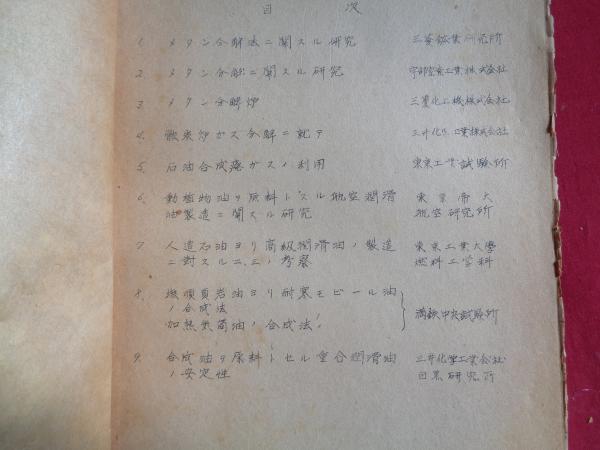 目 次
1. メタン分解法ニ関スル研究 三菱鉱業研究所
2. メタン分解ニ関スル研究 宇部窒素工業株式会社
3. メタン分解炉 三菱化工機株式会社
4. 骸炭炉ガス分解ニ就テ 三井化学工業株式会社
5. 石油合成廃ガスノ利用 東京工業試験所
6. 動植物油ヲ原料トスル航空潤滑 東京帝大
油製造ニ関スル研究 航空研究所
7. 人造石油ヨリ高級潤滑油ノ製造 東京工業大學
ニ対スル二、三ノ考察 燃料工学科
8. 撫順頁岩油ヨリ耐寒モビール油
ノ合成法 満鉄中央試験所
加熱気筒油ノ合成法
9. 合成油ヲ原料トセル重合潤滑油 三井化学工業会社
ノ安定性 目黒研究所